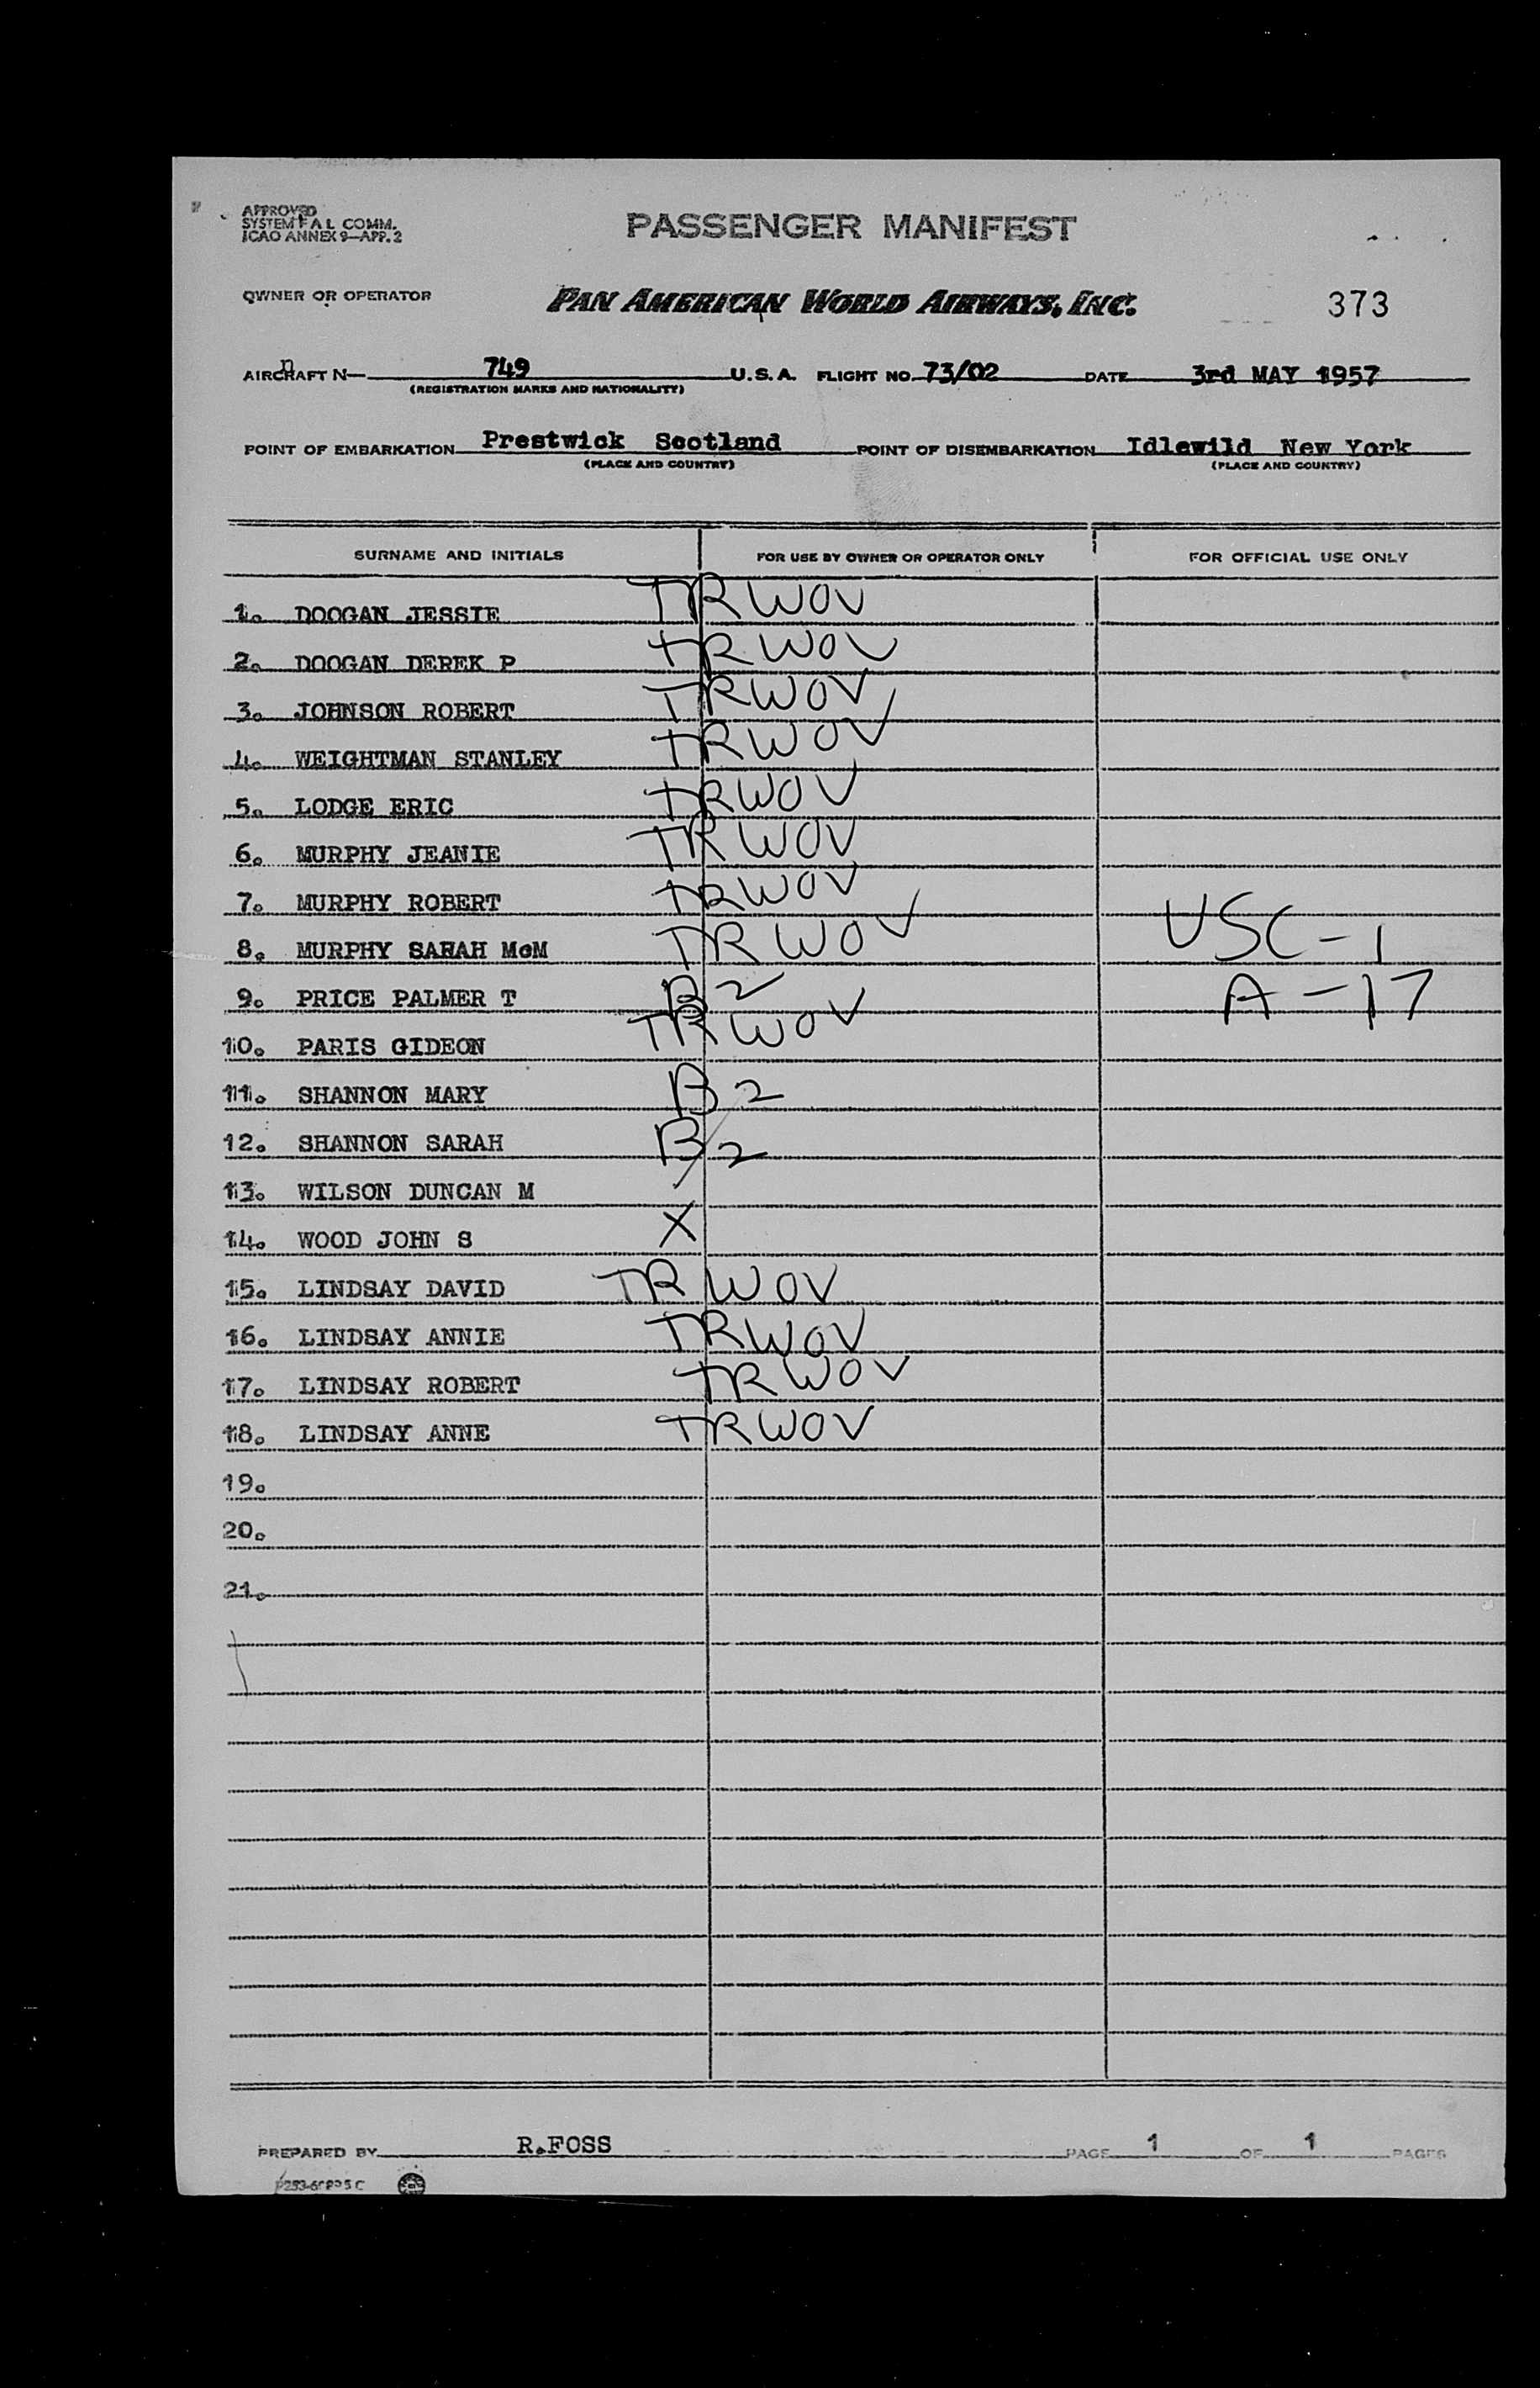 APPROVED
SYSTEM F A L COMM.
ICAO ANNEX 9—APP. 2
PASSENGER MANIFEST
OWNER OR OPERATOR PAN AMERICAN WORLD AIRWAYS, INC. 373
AIRCRAFT N— 749 U.S.A. FLIGHT NO. 73/02 DATE 3rd MAY 1957
(REGISTRATION MARKS AND NATIONALITY)
POINT OF EMBARKATION Prestwick Scotland POINT OF DISEMBARKATION Idlewild New York
(PLACE AND COUNTRY) (PLACE AND COUNTRY)
SURNAME AND INITIALS FOR USE BY OWNER OR OPERATOR ONLY FOR OFFICIAL USE ONLY
1. DOOGAN JESSIE TRWOV
2. DOOGAN DEREK P TRWOV
3. JOHNSON ROBERT TRWOV
4. WEIGHTMAN STANLEY TRWOV
5. LODGE ERIC TRWOV
6. MURPHY JEANIE TRWOV
7. MURPHY ROBERT TRWOV
8. MURPHY SARAH McM TRWOV USC-1
9. PRICE PALMER T B2 A-17
10. PARIS GIDEON TRWOV
11. SHANNON MARY B2
12. SHANNON SARAH B2
13. WILSON DUNCAN M
14. WOOD JOHN S X
15. LINDSAY DAVID TRWOV
16. LINDSAY ANNIE TRWOV
17. LINDSAY ROBERT TRWOV
18. LINDSAY ANNE TRWOV
19.
20.
21.
PREPARED BY R.FOSS PAGE 1 OF 1 PAGES